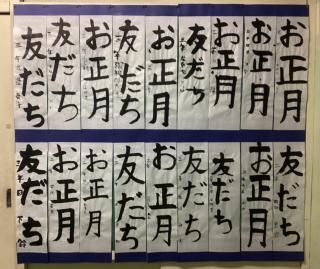 お正月
お正月
お正月
友だち
お正月
友だち
お正月
友だち
友だち
友だち
お正月
友だち
友だち
お正月
友だち
お正月
お正月
友だち